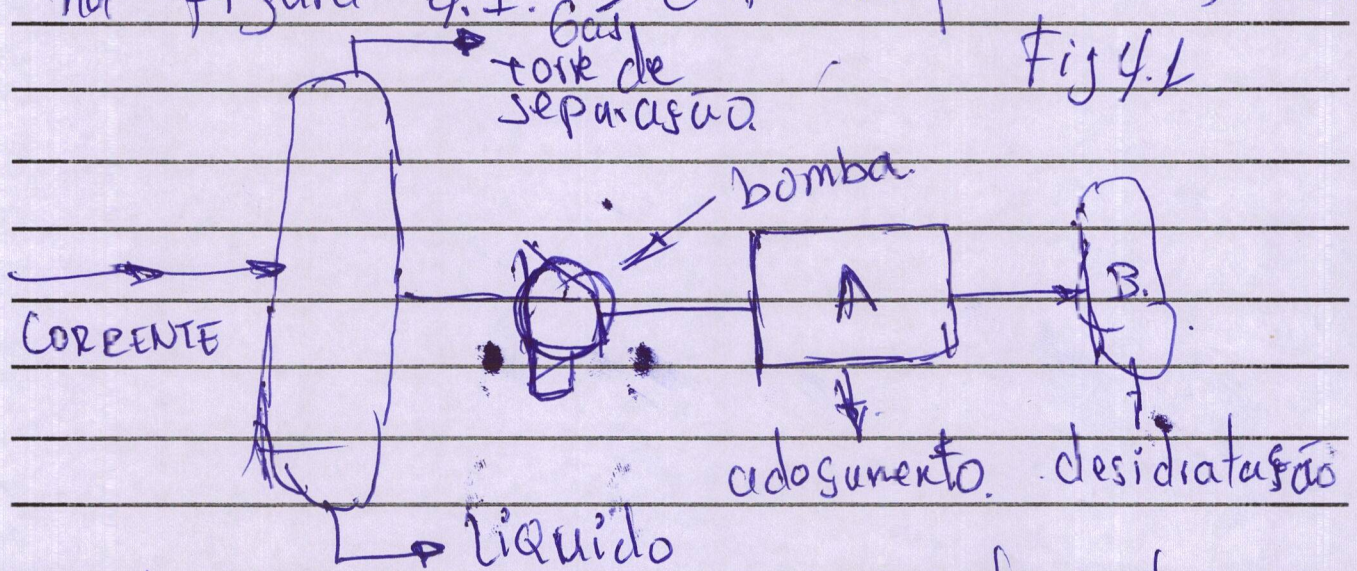 na figura 4.1.
Gás,
torre de
separação.
Fig 4.1
bomba.
CORRENTE
A
B.
adoçamento. desidratação
líquido